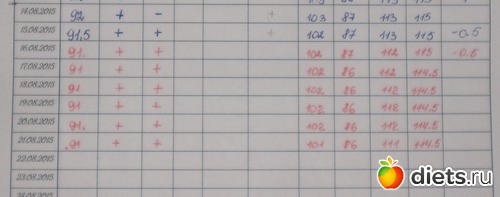 14.08.2015 92 + - + 103 87 113 115
15.08.2015 91,5 + + + 102 87 113 115 -0.5
16.08.2015 91. + + 102 87 112 115 -0.5
17.08.2015 91 + + 102 86 112 114.5
18.08.2015 91 + + 102 86 112 114.5
19.08.2015 91 + + 102 86 112 114.5
20.08.2015 91. + + 102 86 112 114.5
21.08.2015 91 + + 101 86 111 114.5
22.08.2015
23.08.2015
24.08.2015
diets.ru